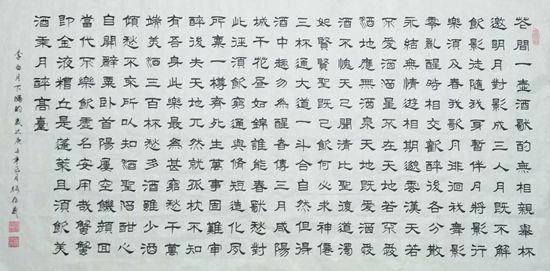 花間一壺酒獨酌無相親舉杯
邀明月對影成三人月既不解
飲影徒隨我身暫伴月將影行
樂須及春我歌月徘徊我舞影
零亂醒時相交歡醉後各分散
永結無情遊相期邈雲漢天若
不愛酒酒星不在天地若不愛
酒地應無酒泉天地既愛酒愛
酒不愧天已聞清比聖復道濁
如賢賢聖既已飲何必求神僊
三杯通大道一斗合自然但得
酒中趣勿為醒者傳三月咸陽
城千花晝如錦誰能春獨愁對
此徑須飲窮通與脩短造化夙
所稟一樽齊死生萬事固難審
醉後失天地兀然就孤枕不知
有吾身此樂最為甚窮愁千萬
端美酒三百杯愁多酒雖少酒
傾愁不來所以知酒聖酒酣心
自開辭粟臥首陽屢空飢顏回
當代不樂飲虛名安用哉蟹螯
即金液糟丘是蓬萊且須飲美
酒乘月醉高臺
李白月下獨酌歲次庚子年